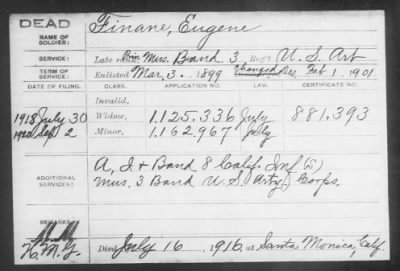 DEAD
NAME OF SOLDIER: Finane, Eugene
SERVICE: Late rank, Mus. Band 3 Reg't U. S. Art
TERM OF SERVICE: Enlisted Mar. 3. 1899 Discharged Feb 1. 1901.
DATE OF FILING. CLASS. APPLICATION NO. LAW. CERTIFICATE NO.
Invalid,
1918 July 30 Widow, 1,125,336 July 881,393
1920 Sep 2 Minor, 1,162,967 July
ADDITIONAL SERVICES: A, I + Band 8 Calif. Inf (S)
Mus. 3 Band U. S. Arty. Corps.
REMARKS:
Died July 16, 1916, at Santa Monica, Calif.